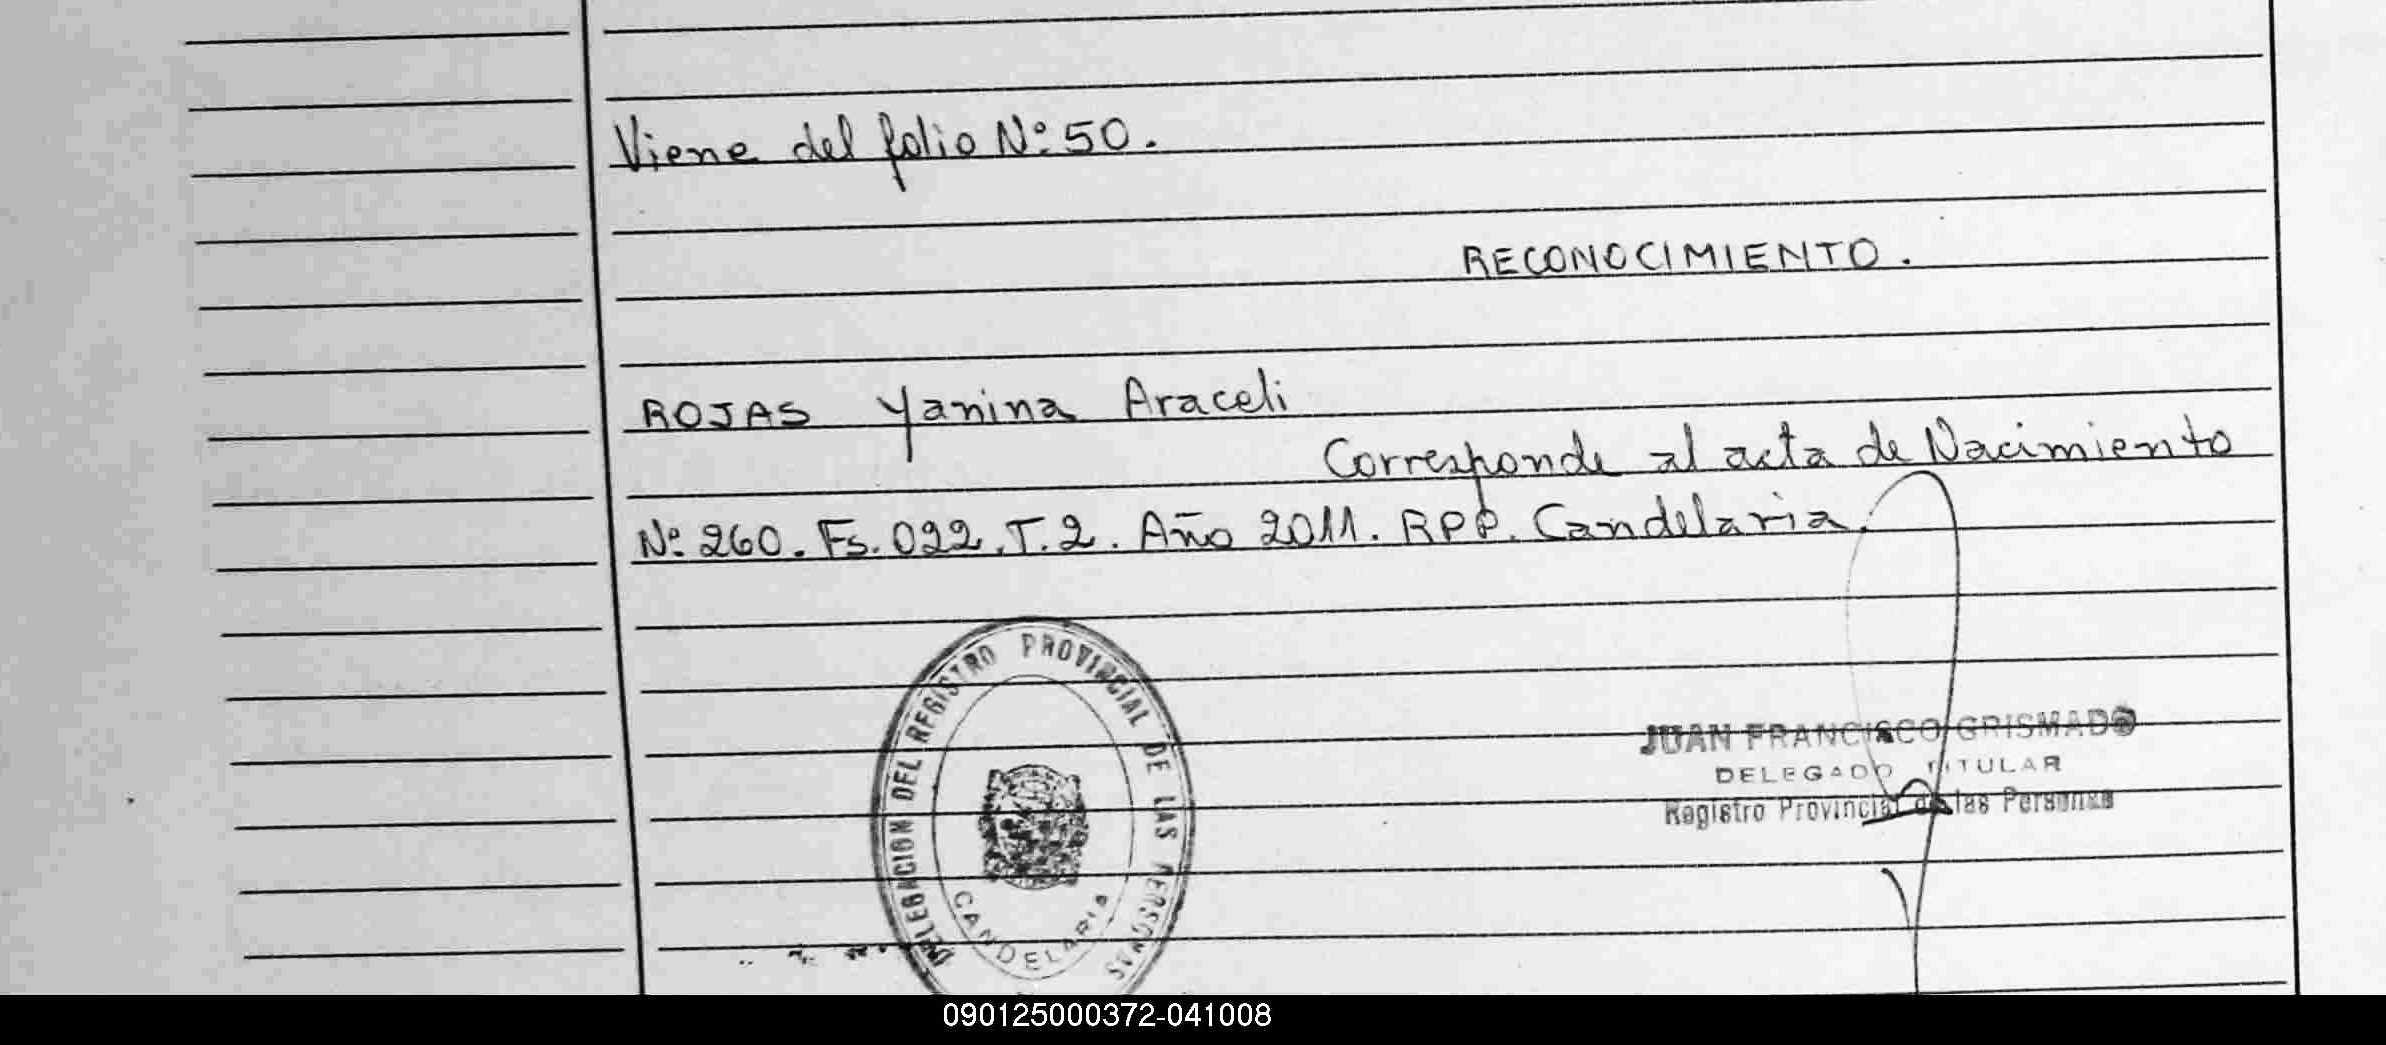 Viene del folio Nº 50.
RECONOCIMIENTO.
ROJAS Yanina Araceli
Corresponde al acta de Nacimiento
Nº 260. Fs. 022. T. 2. Año 2011. RPP. Candelaria.
DELEGACION DEL REGISTRO PROVINCIAL DE LAS PERSONAS
CANDELARIA
JUAN FRANCISCO GRISMADO
DELEGADO TITULAR
Registro Provincial de las Personas
090125000372-041008